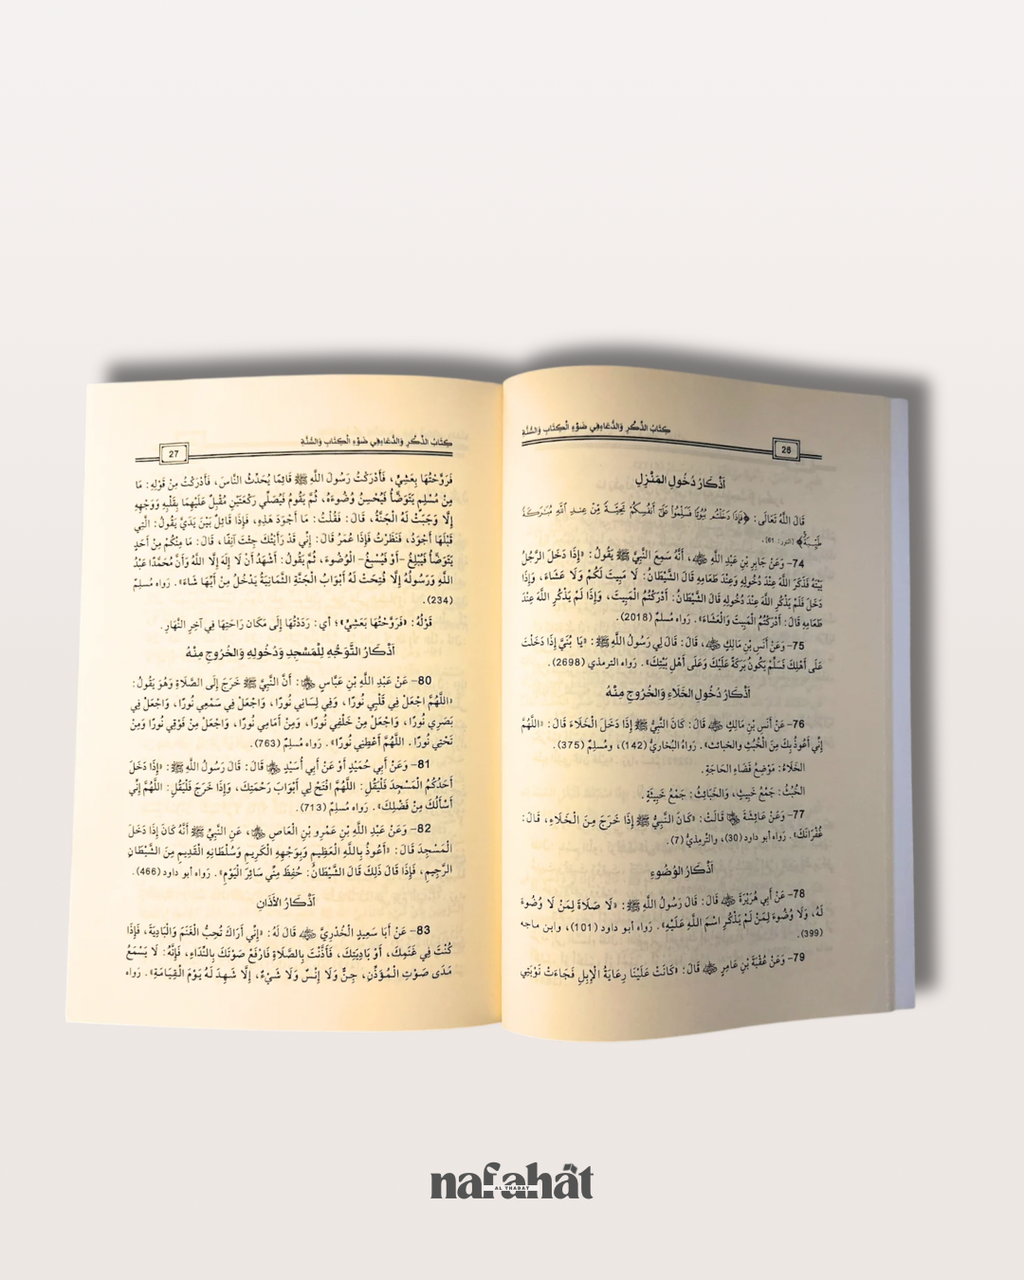 كِتَابُ الذِّكْرِ وَالدُّعَاءِ فِي ضَوْءِ الْكِتَابِ وَالسُّنَّةِ
26
أَذْكَارُ دُخُولِ المَنْزِلِ
قَالَ اللَّهُ تَعَالَى: ﴿فَإِذَا دَخَلْتُم بُيُوتًا فَسَلِّمُوا عَلَىٰ أَنفُسِكُمْ تَحِيَّةً مِّنْ عِندِ اللَّهِ مُبَٰرَكَةً
طَيِّبَةً﴾ [النور: 61].
74– وَعَنْ جَابِرِ بْنِ عَبْدِ اللَّهِ ﷺ، أَنَّهُ سَمِعَ النَّبِيَّ ﷺ يَقُولُ: «إِذَا دَخَلَ الرَّجُلُ
بَيْتَهُ فَذَكَرَ اللَّهَ عِنْدَ دُخُولِهِ وَعِنْدَ طَعَامِهِ قَالَ الشَّيْطَانُ: لَا مَبِيتَ لَكُمْ وَلَا عَشَاءَ، وَإِذَا
دَخَلَ فَلَمْ يَذْكُرِ اللَّهَ عِنْدَ دُخُولِهِ قَالَ الشَّيْطَانُ: أَدْرَكْتُمُ الْمَبِيتَ، وَإِذَا لَمْ يَذْكُرِ اللَّهَ عِنْدَ
طَعَامِهِ قَالَ: أَدْرَكْتُمُ الْمَبِيتَ وَالْعَشَاءَ». رَواه مُسلمٌ (2018).
75– وَعَنْ أَنَسِ بْنِ مَالِكٍ، قَالَ: قَالَ لِي رَسُولُ اللَّهِ ﷺ: «يَا بُنَيَّ إِذَا دَخَلْتَ
عَلَى أَهْلِكَ فَسَلِّمْ يَكُونُ بَرَكَةً عَلَيْكَ وَعَلَى أَهْلِ بَيْتِكَ». رَواه الترمذي (2698).
أَذْكَارُ دُخُولِ الخَلَاءِ وَالخُرُوجِ مِنْهُ
76– عَنْ أَنَسِ بْنِ مَالِكٍ قَالَ: كَانَ النَّبِيُّ ﷺ إِذَا دَخَلَ الْخَلَاءَ قَالَ: «اللَّهُمَّ
إِنِّي أَعُوذُ بِكَ مِنَ الْخُبُثِ والخبائث». رَواهُ البُخاريُّ (142)، ومُسلِمٌ (375).
الخَلَاءُ: مَوْضِعُ قَضَاءِ الحَاجَةِ.
الخُبُثُ: جَمْعُ خَبِيثٍ، وَالخَبَائِثُ: جَمْعُ خَبِيثَةٍ.
77– وَعَنْ عَائِشَةَ قَالَتْ: «كَانَ النَّبِيُّ ﷺ إِذَا خَرَجَ مِنَ الْخَلَاءِ، قَالَ:
غُفْرَانَكَ». رَواه أبو داود (30)، والتِّرمِذيُّ (7).
أَذْكَارُ الوُضُوءِ
78– عَنْ أَبِي هُرَيْرَةَ قَالَ: قَالَ رَسُولُ اللَّهِ ﷺ: «لَا صَلَاةَ لِمَنْ لَا وُضُوءَ
لَهُ، وَلَا وُضُوءَ لِمَنْ لَمْ يَذْكُرِ اسْمَ اللَّهِ عَلَيْهِ». رَواه أبو داود (101)، وابن ماجه
(399).
79– وَعَنْ عُقْبَةَ بْنِ عَامِرٍ قَالَ: «كَانَتْ عَلَيْنَا رِعَايَةُ الْإِبِلِ فَجَاءَتْ نَوْبَتِي
كِتَابُ الذِّكْرِ وَالدُّعَاءِ فِي ضَوْءِ الْكِتَابِ وَالسُّنَّةِ
27
فَرَوَّحْتُهَا بِعَشِيٍّ، فَأَدْرَكْتُ رَسُولَ اللَّهِ ﷺ قَائِمًا يُحَدِّثُ النَّاسَ، فَأَدْرَكْتُ مِنْ قَوْلِهِ: مَا
مِنْ مُسْلِمٍ يَتَوَضَّأُ فَيُحْسِنُ وُضُوءَهُ، ثُمَّ يَقُومُ فَيُصَلِّي رَكْعَتَيْنِ مُقْبِلٌ عَلَيْهِمَا بِقَلْبِهِ وَوَجْهِهِ
إِلَّا وَجَبَتْ لَهُ الْجَنَّةُ، قَالَ: فَقُلْتُ: مَا أَجْوَدَ هَذِهِ، فَإِذَا قَائِلٌ بَيْنَ يَدَيَّ يَقُولُ: الَّتِي
قَبْلَهَا أَجْوَدُ، فَنَظَرْتُ فَإِذَا عُمَرُ قَالَ: إِنِّي قَدْ رَأَيْتُكَ جِئْتَ آنِفًا، قَالَ: مَا مِنْكُمْ مِنْ أَحَدٍ
يَتَوَضَّأُ فَيُبْلِغُ -أَوْ فَيُسْبِغُ- الْوُضُوءَ، ثُمَّ يَقُولُ: أَشْهَدُ أَنْ لَا إِلَهَ إِلَّا اللَّهُ وَأَنَّ مُحَمَّدًا عَبْدُ
اللَّهِ وَرَسُولُهُ إِلَّا فُتِحَتْ لَهُ أَبْوَابُ الْجَنَّةِ الثَّمَانِيَةُ يَدْخُلُ مِنْ أَيِّهَا شَاءَ». رَواه مُسلِمٌ
(234).
قَوْلُهُ: «فَرَوَّحْتُهَا بَعَشِيٍّ»؛ أي: رَدَدْتُهَا إِلَى مَكَان رَاحَتِهَا فِي آخِرِ النَّهَارِ.
أَذْكَارُ التَّوَجُّهِ لِلْمَسْجِدِ وَدُخُولِهِ وَالخُرُوجِ مِنْهُ
80– عَنْ عَبْدِ اللَّهِ بْنِ عَبَّاسٍ: أَنَّ النَّبِيَّ ﷺ خَرَجَ إِلَى الصَّلَاةِ وَهُوَ يَقُولُ:
«اللَّهُمَّ اجْعَلْ فِي قَلْبِي نُورًا، وَفِي لِسَانِي نُورًا، وَاجْعَلْ فِي سَمْعِي نُورًا، وَاجْعَلْ فِي
بَصَرِي نُورًا، وَاجْعَلْ مِنْ خَلْفِي نُورًا، وَمِنْ أَمَامِي نُورًا، وَاجْعَلْ مِنْ فَوْقِي نُورًا وَمِنْ
تَحْتِي نُورًا. اللَّهُمَّ أَعْطِنِي نُورًا». رَواه مُسلِمٌ (763).
81– وَعَنْ أَبِي حُمَيْدٍ أَوْ عَنْ أَبِي أُسَيْدٍ قَالَ: قَالَ رَسُولُ اللَّهِ ﷺ: «إِذَا دَخَلَ
أَحَدُكُمُ الْمَسْجِدَ فَلْيَقُلِ: اللَّهُمَّ افْتَحْ لِي أَبْوَابَ رَحْمَتِكَ، وَإِذَا خَرَجَ فَلْيَقُلِ: اللَّهُمَّ إِنِّي
أَسْأَلُكَ مِنْ فَضْلِكَ». رَواه مُسلِمٌ (713).
82– وَعَنْ عَبْدِ اللَّهِ بْنِ عَمْرِو بْنِ الْعَاصِ، عَنِ النَّبِيِّ ﷺ أَنَّهُ كَانَ إِذَا دَخَلَ
الْمَسْجِدَ قَالَ: «أَعُوذُ بِاللَّهِ الْعَظِيمِ وَبِوَجْهِهِ الْكَرِيمِ وَسُلْطَانِهِ الْقَدِيمِ مِنَ الشَّيْطَانِ
الرَّجِيمِ، فَإِذَا قَالَ ذَلِكَ قَالَ الشَّيْطَانُ: حُفِظَ مِنِّي سَائِرَ الْيَوْمِ». رَواه أبو داود (466).
أَذْكَارُ الأَذَانِ
83– عَنْ أَبَا سَعِيدٍ الْخُدْرِيَّ قَالَ لَهُ: «إِنِّي أَرَاكَ تُحِبُّ الْغَنَمَ وَالْبَادِيَةَ، فَإِذَا
كُنْتَ فِي غَنَمِكَ، أَوْ بَادِيَتِكَ، فَأَذَّنْتَ بِالصَّلَاةِ فَارْفَعْ صَوْتَكَ بِالنِّدَاءِ، فَإِنَّهُ: لَا يَسْمَعُ
مَدَى صَوْتِ الْمُؤَذِّنِ، جِنٌّ وَلَا إِنْسٌ وَلَا شَيْءٌ، إِلَّا شَهِدَ لَهُ يَوْمَ الْقِيَامَةِ». رَواه
nafahat
AL THABAT